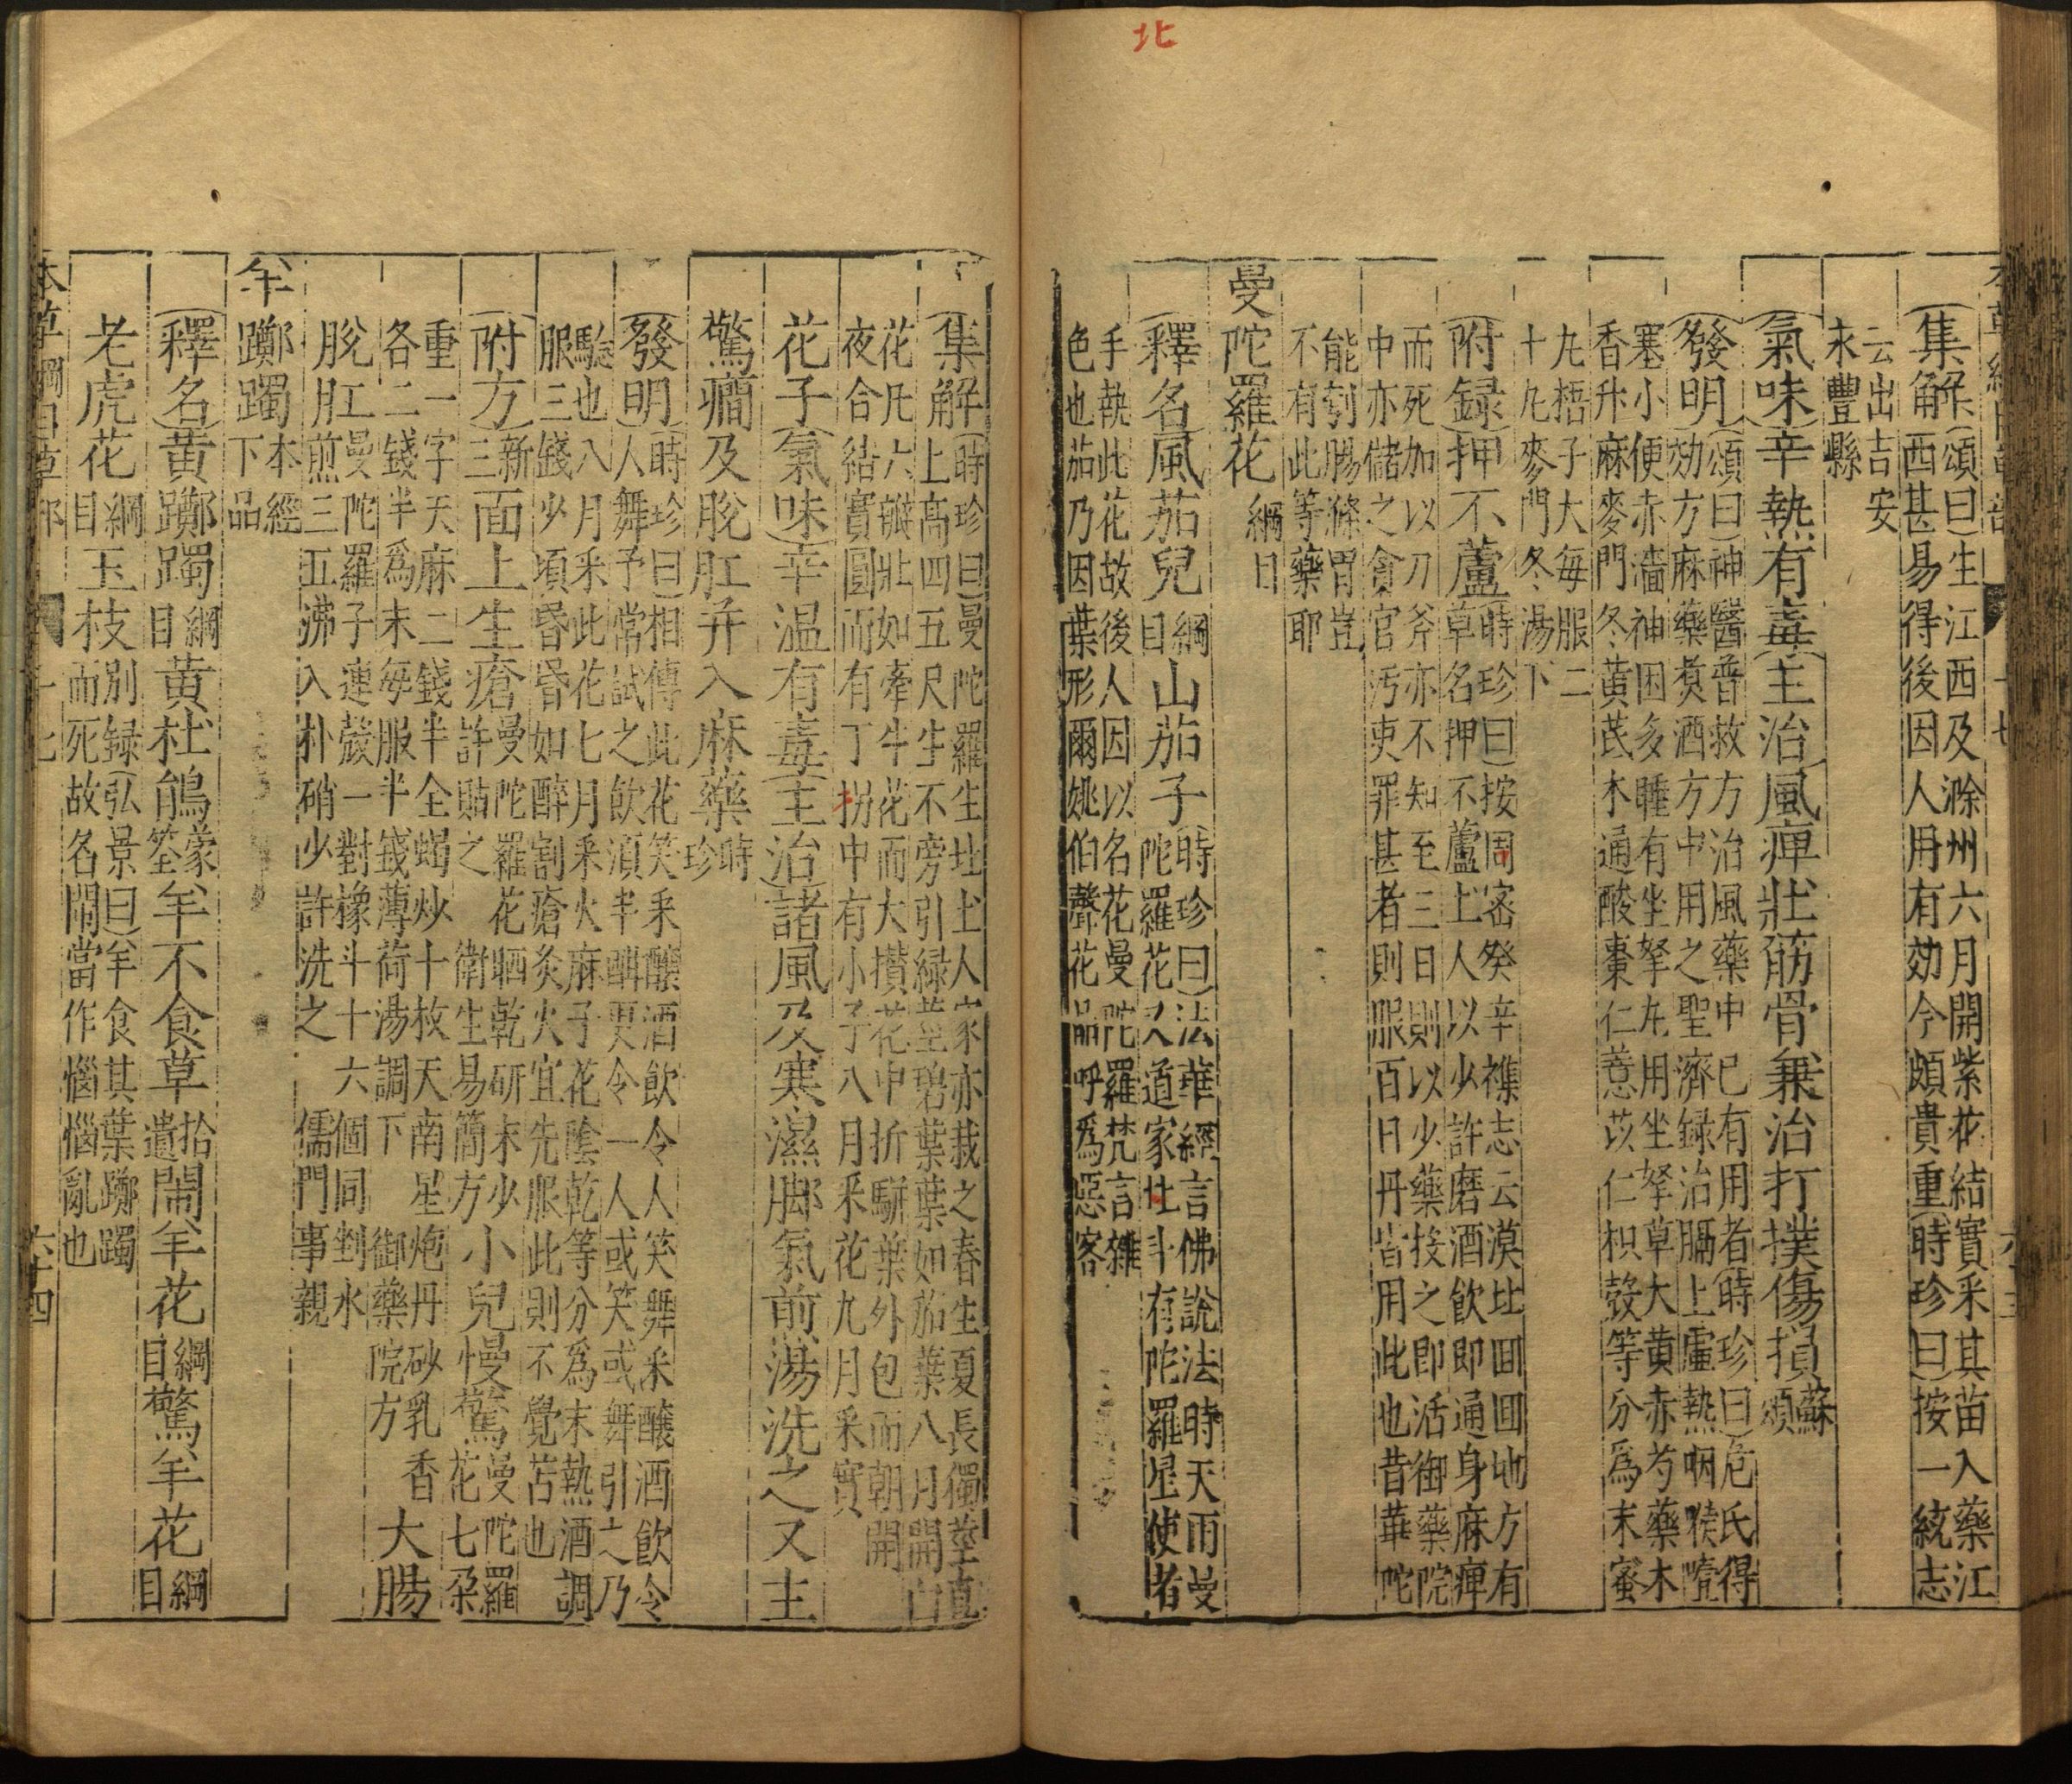 北
集解頌曰生江西及滁州六月開紫花結實采其苗入藥江
西甚易得後因人用有効今頗貴重時珍曰按一統志
云出吉安
永豐縣
氣味辛熱有毒主治風痺壯筋骨兼治打撲傷損蘇頌
發明頌曰神醫普救方治風藥中已有用者時珍曰危氏得
効方麻藥煑酒方中用之聖濟録治膈上虛熱咽喉噎
塞小便赤濇神困多睡有坐拏丸用坐拏草大黃赤芍藥木
香升麻麥門冬黃芪木通酸棗仁薏苡仁枳殼等分爲末蜜
丸梧子大每服二
十丸麥門冬湯下
附録押不蘆時珍曰按周密癸辛襍志云漠北囬囬地方有
草名押不蘆土人以少許磨酒飲即通身麻痺
而死加以刀斧亦不知至三日則以少藥投之即活御藥院
中亦儲之貪官污吏罪甚者則服百日丹皆用此也昔華陀
能刳腸滌胃豈
不有此等藥耶
曼陀羅花綱目
釋名風茄兒綱目山茄子時珍曰法華經言佛說法時天雨曼
陀羅花又道家北斗有陀羅星使者
手執此花故後人因以名花曼陀羅梵言雜
色也茄乃因葉形爾姚伯聲花品呼爲惡客
集解時珍曰曼陀羅生北土人家亦栽之春生夏長獨莖直
上高四五尺生不旁引緑莖碧葉葉如茄葉八月開白
花凡六瓣壯如牽牛花而大攅花中折駢葉外包而朝開
夜合結實圓而有丁拐中有小子八月采花九月采實
花子氣味辛溫有毒主治諸風及寒濕脚氣前湯洗之又主
驚癎及脫肛并入麻藥時珍
發明時珍曰相傳此花笑采釀酒飲令人笑舞采釀酒飲令
人舞予常試之飲須半酣更令一人或笑或舞引之乃
驗也八月采此花七月采火麻子花陰乾等分爲末熱酒調
服三錢少頃昏昏如醉割瘡灸火宜先服此則不覺苦也
附方新三面上生瘡曼陀羅花晒乾研末少許貼之衛生易簡方小兒慢驚曼陀羅花七朶
重一字天麻二錢半全蝎炒十枚天南星炮丹砂乳香
各二錢半爲末每服半錢薄荷湯調下御藥院方大腸
脫肛曼陀羅子連殼一對橡斗十六個同剉水
煎三五沸入朴硝少許洗之儒門事親
羊躑躅本經下品
釋名黃躑躅綱目黃杜鵑蒙筌羊不食草拾遺鬧羊花綱目驚羊花綱目
老虎花綱目玉枝別録弘景曰羊食其葉躑躅
而死故名鬧當作惱惱亂也
本草綱目草部 十七 六十四